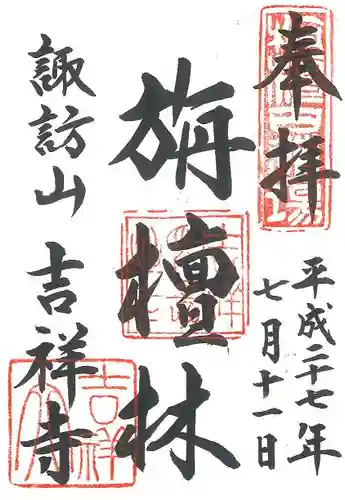 奉拝
平成二十七年
七月十一日
旃檀林
諏訪山吉祥寺
吉祥